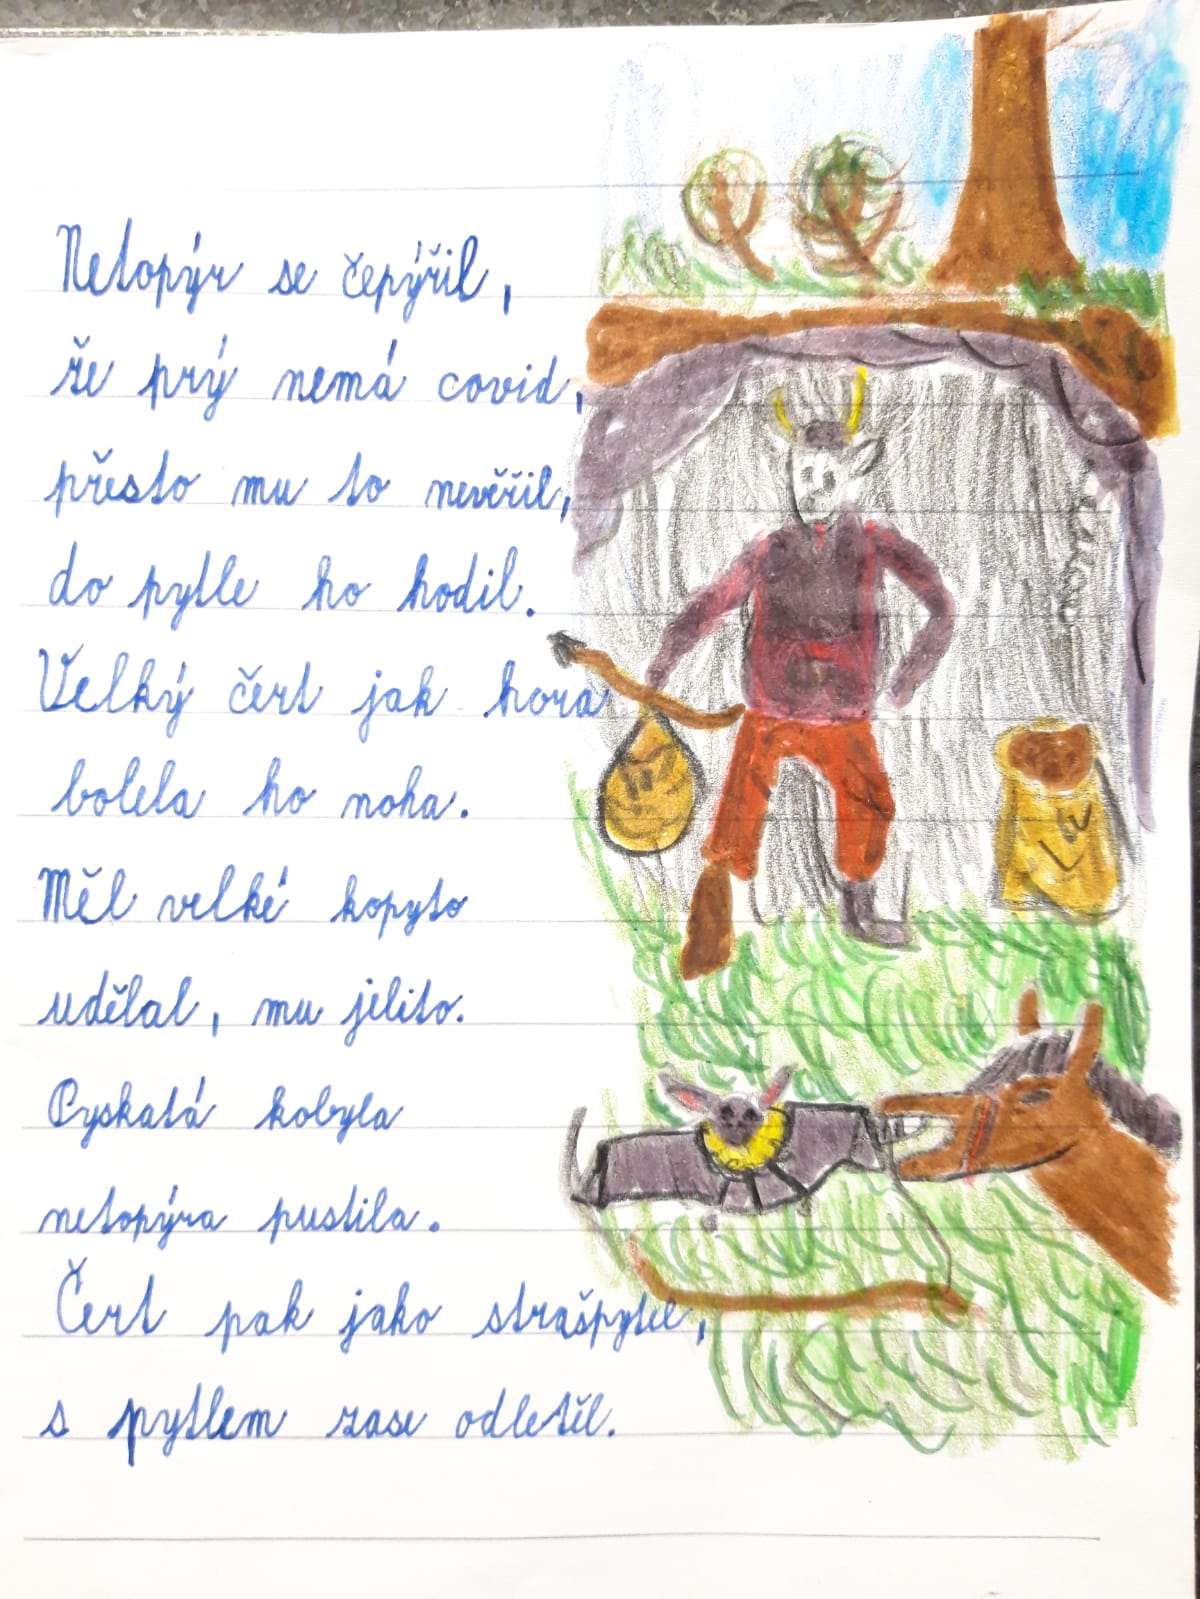 Netopýr se čepýřil,
že prý nemá covid,
přesto mu to nevěřil,
do pytle ho hodil.
Velký čert jak hora
bolela ho noha.
Měl velké kopyto
udělal, mu jelito.
Pyskatá kobyla
netopýra pustila.
Čert pak jako strašpytel,
s pytlem zase odletěl.